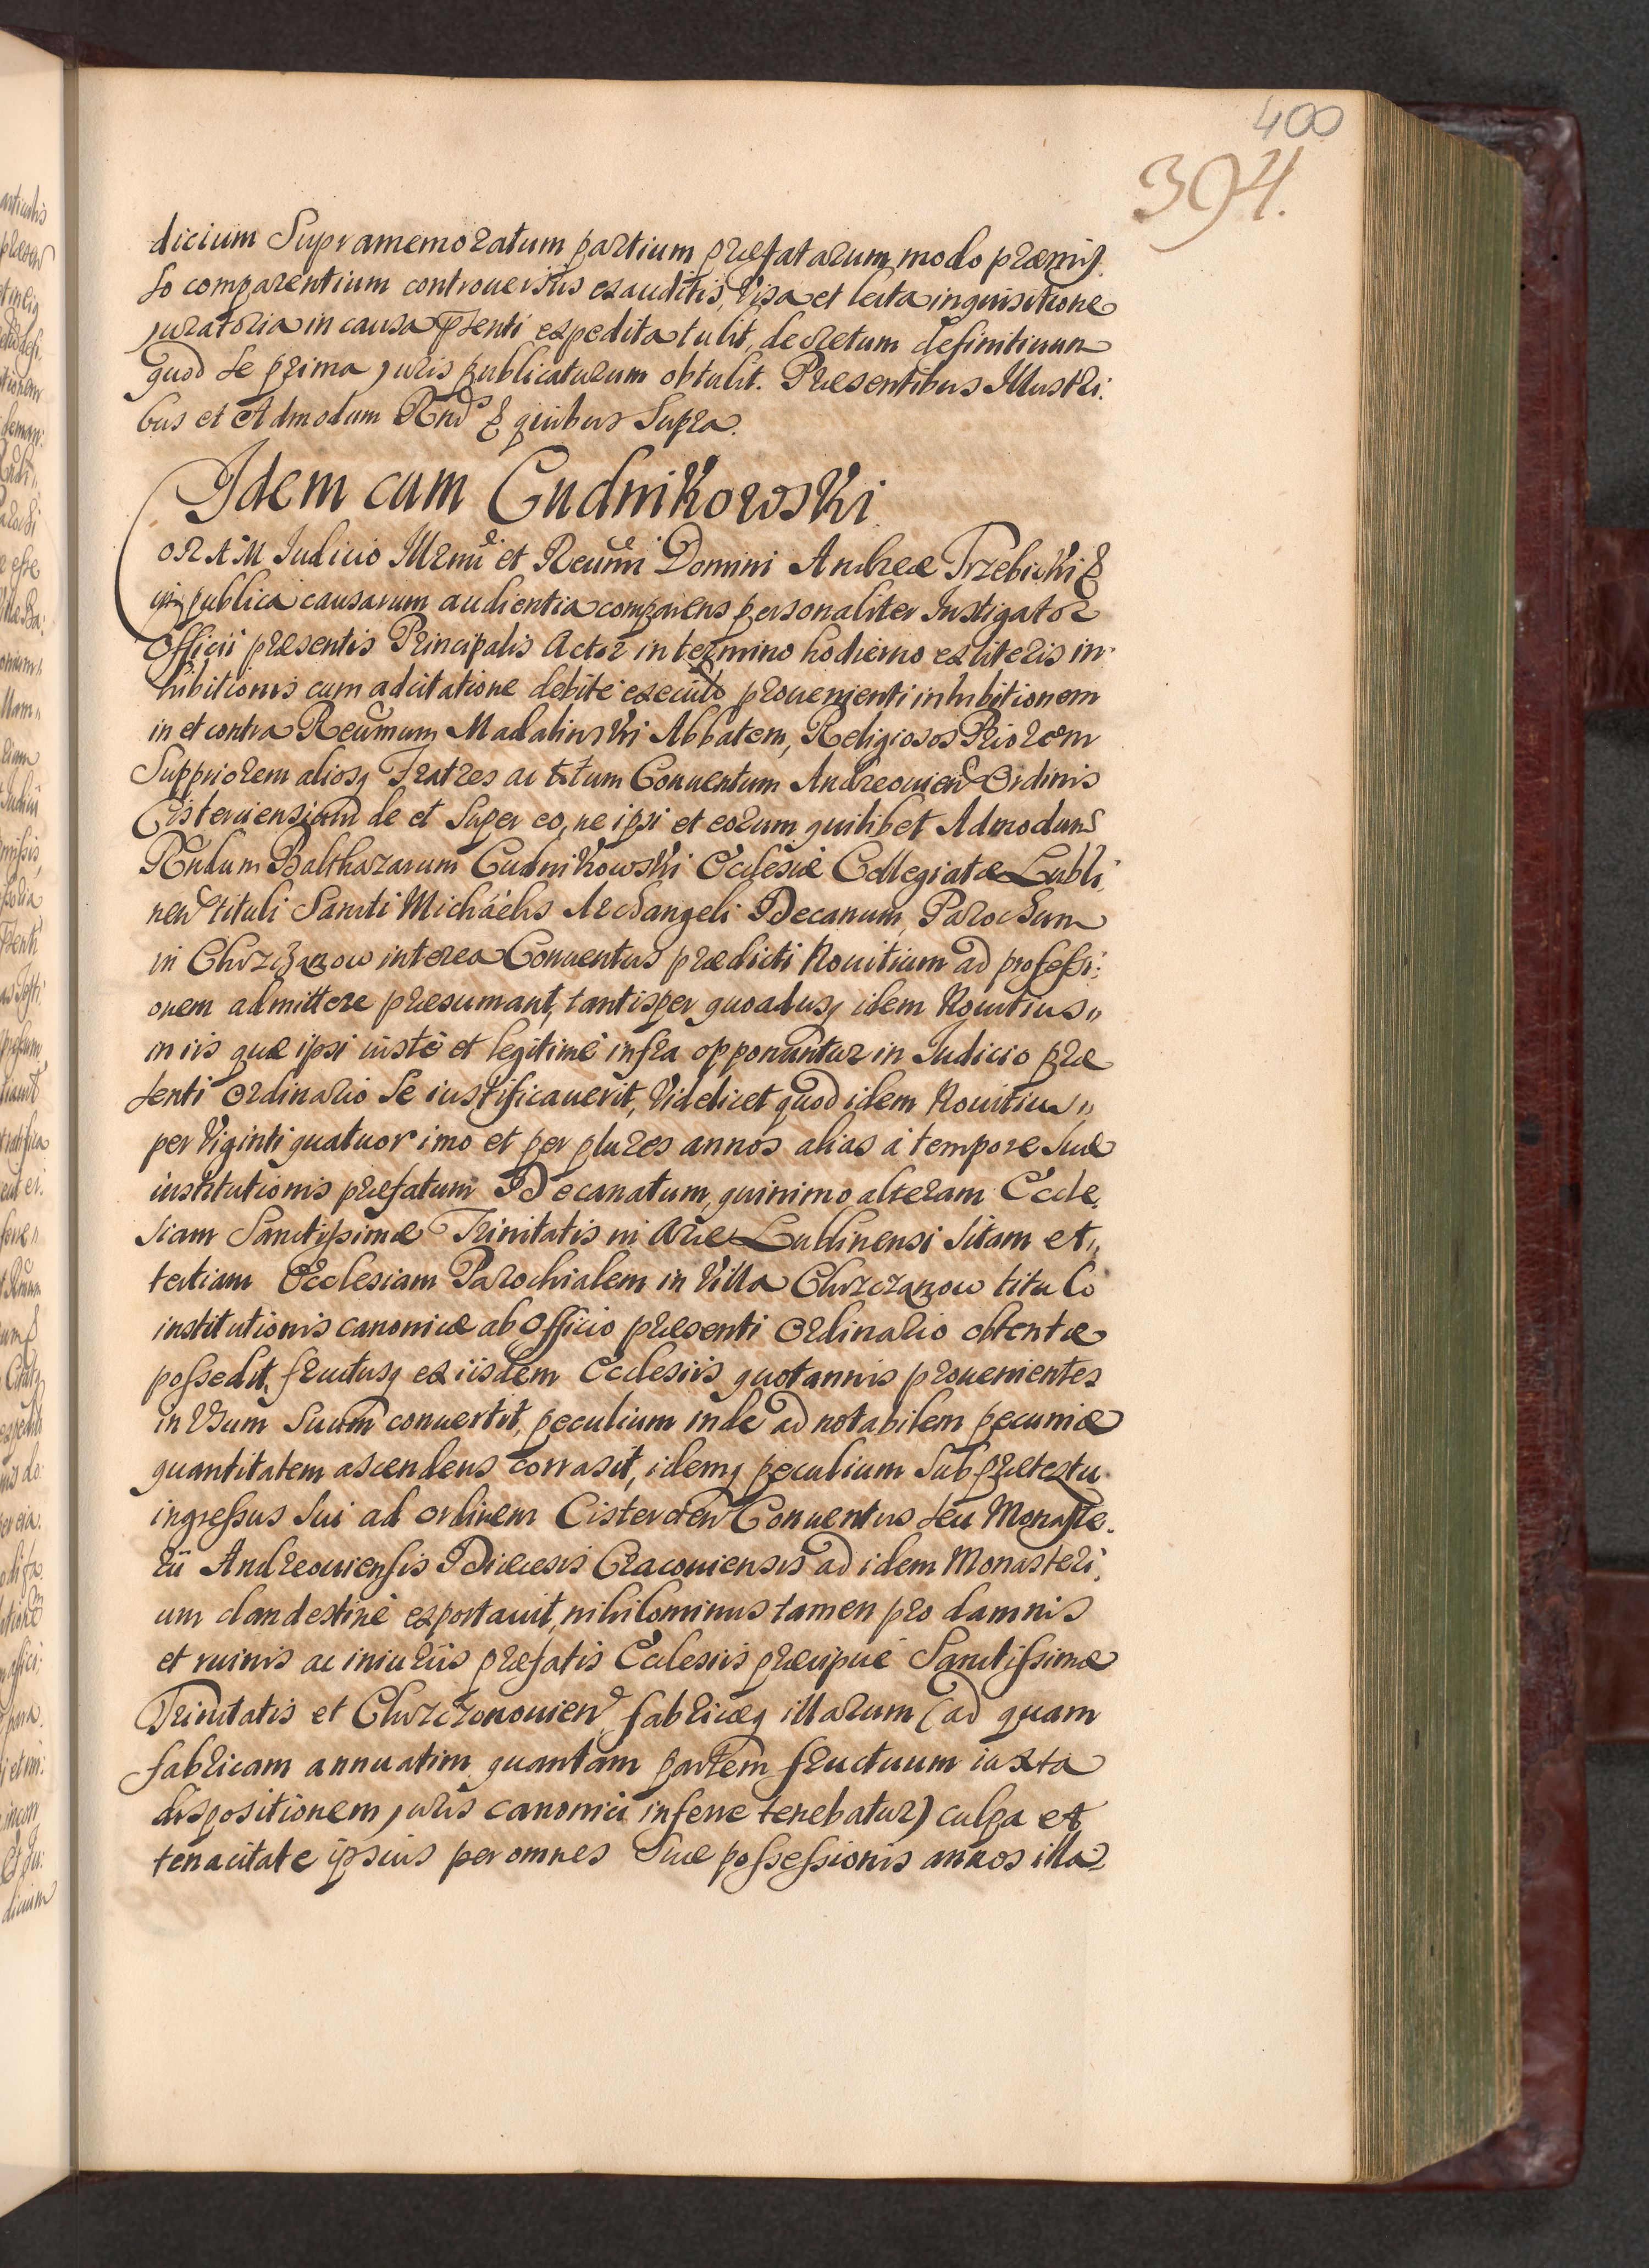 400
394.
dicium Supramemoratum partium præfatarum modo præmis
so comparentium controuersiis exauditis, Visa et lecta inquisitione
juratoria in causa pñsenti expedita tulit, decretum definitiuum
quod se prima juris publicaturum obtulit. Præsentibus Illustri:
bus et Admodum Rnd̃ & quibus Supra.
Idem cum Cudnikowski
ORAM Iudicio Illrmi et Reumi Domini Andreæ Trzebicki &
in publica causarum audientia comparens personaliter Instigator
Officii præsentis Principalis Actor in termino hodierno ex literis in
hibitionis cum adcitatione debitè executo proueniẽti inhibitionem
in et contra Reumum Madalinski Abbatem, Religiosos Priorem
Suppriorem aliosq Fratres ac totum Conuentum Andreouien Ordinis
Cisterciensium de et super eo, ne ipsi et eorum quilibet Admodum
Rñdum Balthazarum Cudnikowski Ecclesiæ Collegiatæ Lubli
nen tituli Sancti Michäelis Archangeli Decanum, Parochum
in Chrzczanow interea Conuentus prædicti Nouitium ad professi:
onem admittere præsumant, tantisper quoadusq idem Nouitius
in iis quæ ipsi iustè et legitimè infra opponuntur in Iudicio præ
senti Ordinario se iustificauerit, Videlicet quod idem Nouitius
per Viginti quatuor imo et per plures annos alias á tempore suæ
institutionis præfatum Decanatum, quinimo alteram Eccle,
siam Sanctissimæ Trinitatis in Arce Lublinensi sitam et
tertiam Ecclesiam Parochialem in Villa Chrzczanow titulo
institutionis canonicæ ab Officio præsenti Ordinario obtentæ
possedit, fructusq ex iisdem Ecclesiis quotannis prouenientes
in Vsum suum conuertit, peculium inde ad notabilem pecuniæ
quantitatem ascendens corrasit, idemq peculium sub prætextu
ingressus sui ad ordinem Cistercien Conuentus seu Monaste.
rii Andreouiensis Diæcesis Cracouiensis ad idem Monasteri,
um clandestinè exportauit, nihilominus tamen pro damnis
et ruinis ac iniuriis præfatis Ecclesiis præcipuè Sanctissimæ
Trinitatis et Chrzczonouien fabricæq illarum (ad quam
fabricam annuatim quantam partem fructuum iuxta
dispositionem juris canonici inferre tenebatur) culpa et
tenacitate ipsius per omnes suæ possessionis annos illa